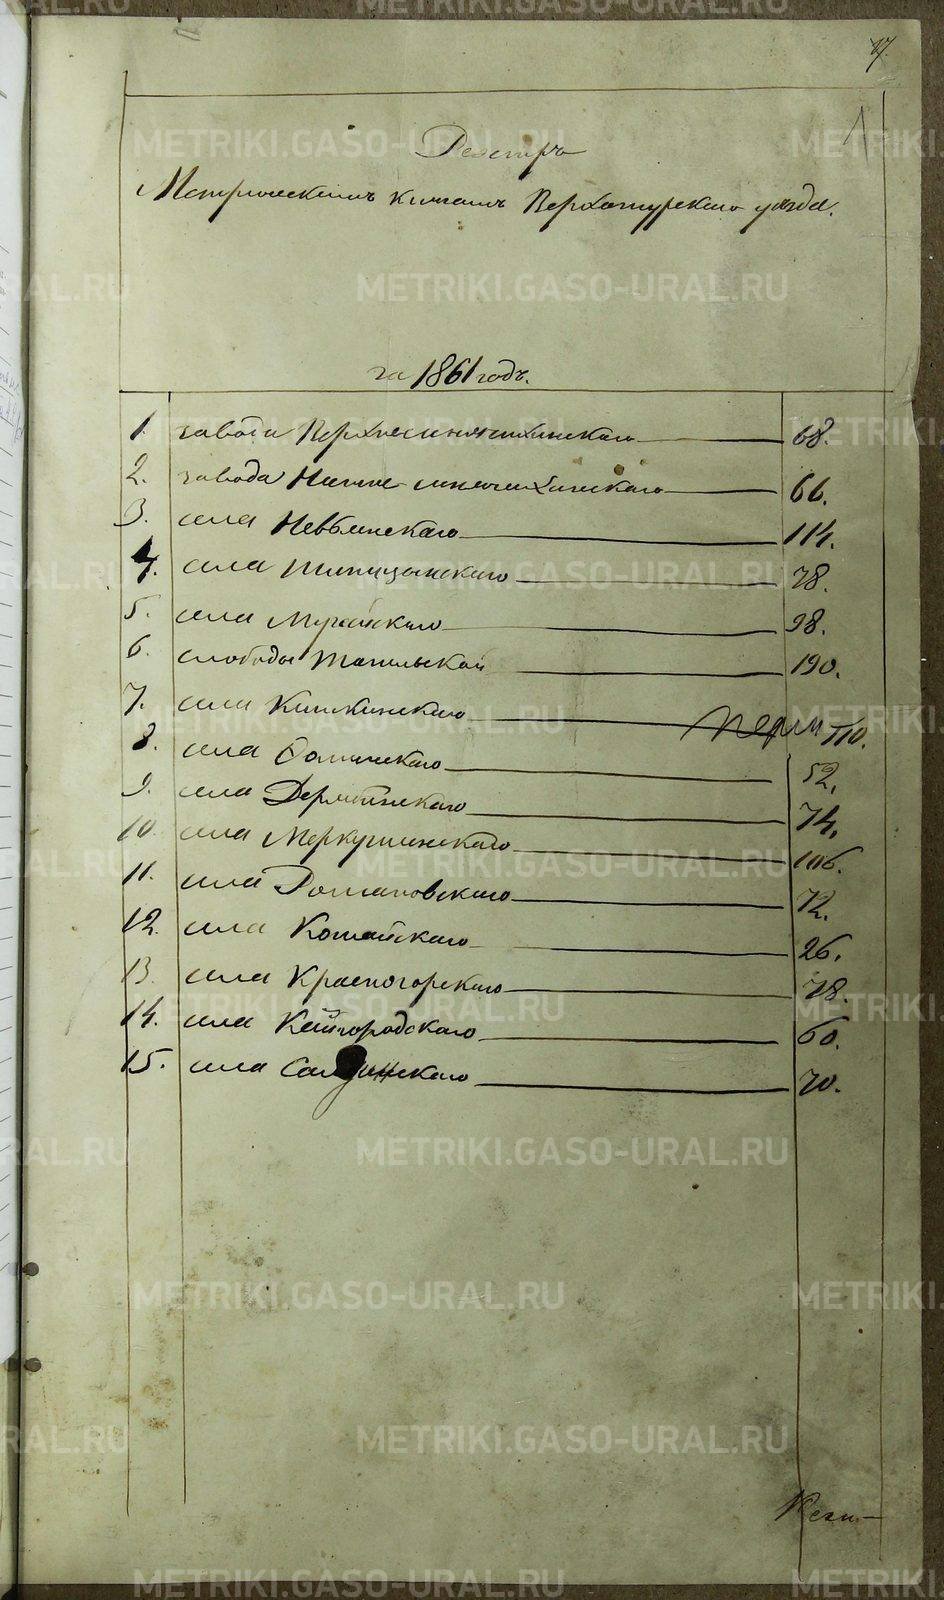 Реэстръ
Метрическимъ книгамъ Верхотурского уезда.
за 1861 годъ.
1. завода Верхнесинячихинскаго 68.
2. завода Нижне-синячихинскаго 66.
3. села Невьянскаго 114.
4. села Топорищевскаго 78.
5. села Мугайскаго 98.
6. слободы Тагильской 190.
7. села Кишкинскаго 110.
8. села Фоминскаго 52.
9. села Дерябинскаго 74.
10. села Меркушинскаго 106.
11. села Романовскаго 72.
12. села Кошайскаго 26.
13. села Красногорскаго 78.
14. села Кайгородскаго 60.
15. села Салдинскаго 70.
METRIKI.GASO-URAL.RU